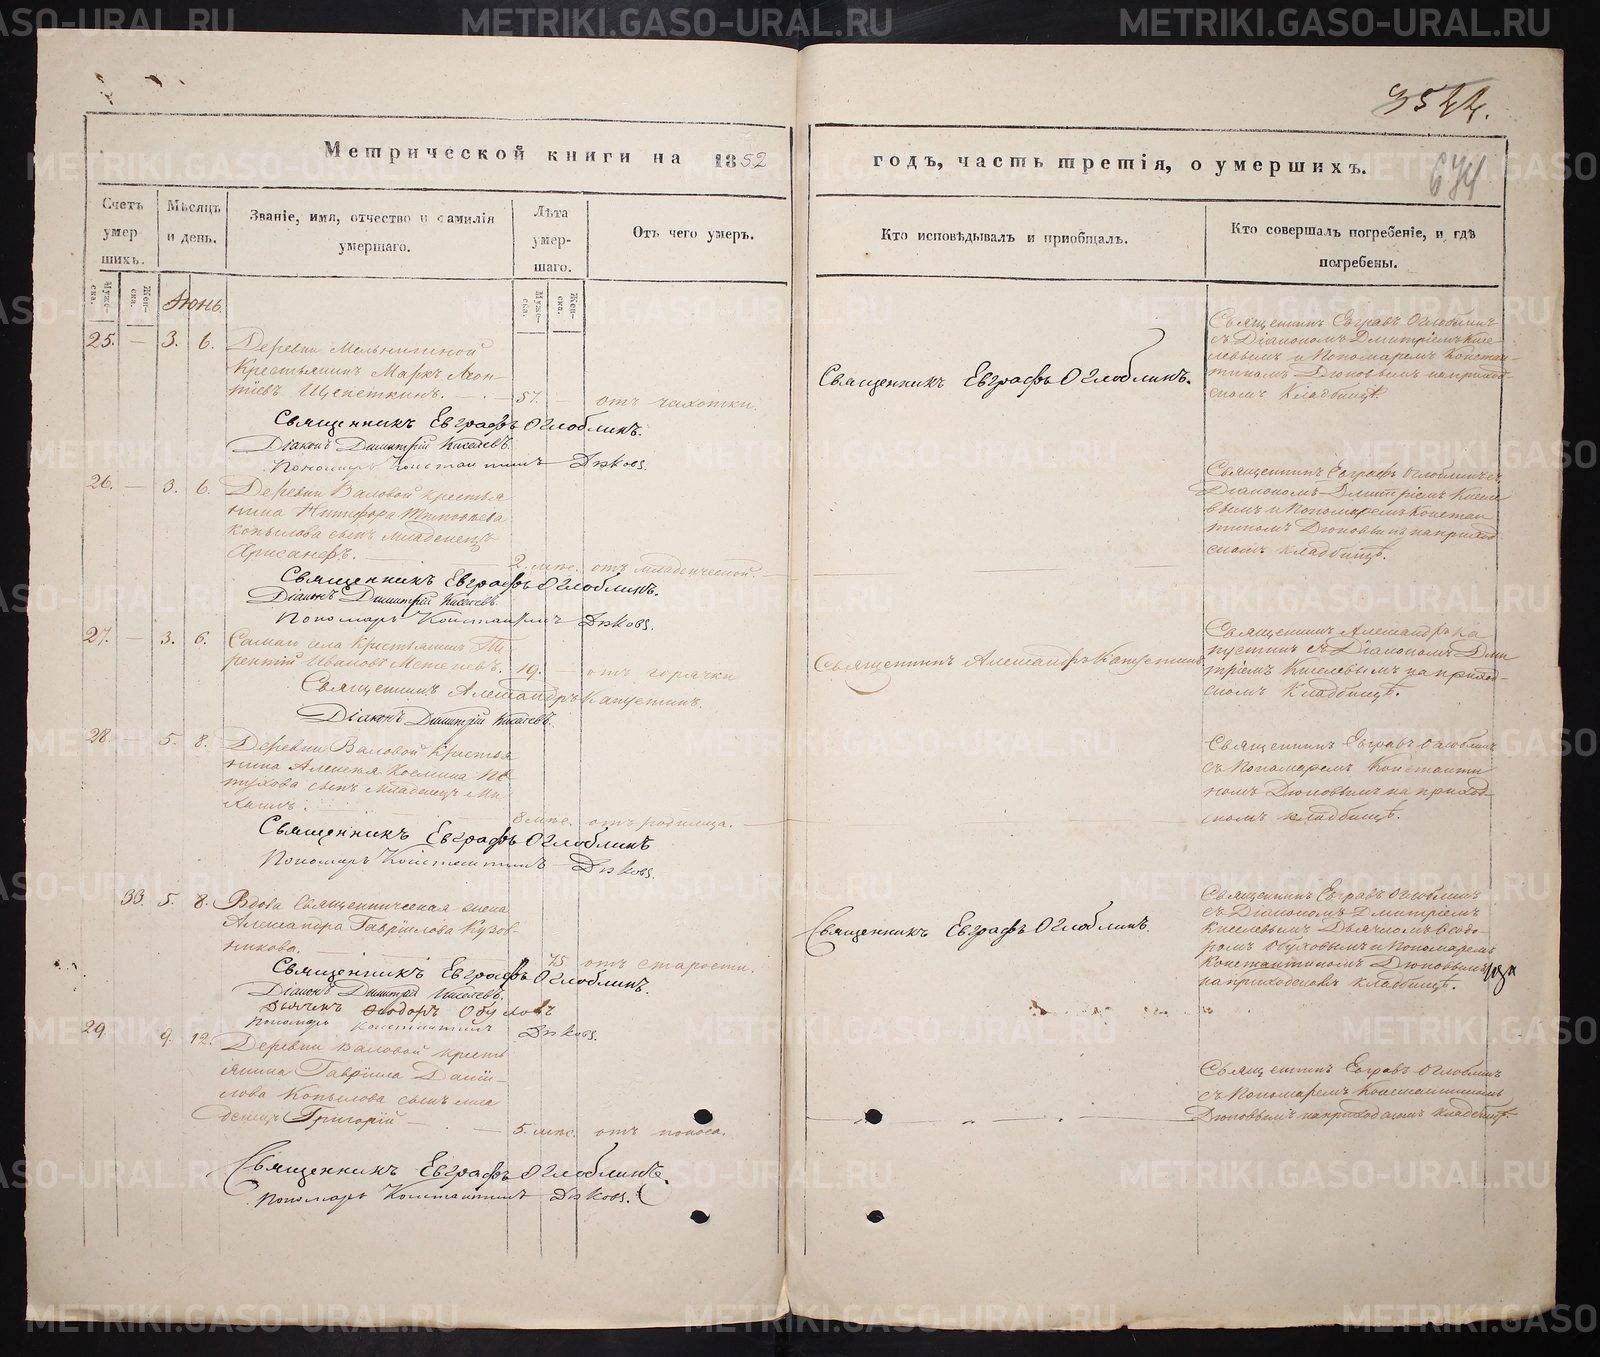 METRIKI.GASO-URAL.RU
35
Метрической книги на 1852
годъ, часть третія, о умершихъ.
Счетъ умершихъ.
Мѣсяцъ и день.
Званіе, имя, отчество и фамилія умершаго.
Лѣта умершаго.
Отъ чего умеръ.
Кто исповѣдывалъ и приобщалъ.
Кто совершалъ погребеніе, и гдѣ погребены.
Мужеска.
Женска.
Мужеска.
Женска.
Июнь.
25. — 3. 6. Деревни Мельнишной
Крестьянинъ Маркъ Леон-
тіевъ Щепеткинъ. 57. — отъ чахотки.
Священникъ Евграфъ Оглоблинъ.
Діаконъ Димитрій Киселевъ.
Пономарь Константинъ
Священникъ Евграфъ Оглоблинъ.
Священникъ Евграфъ Оглоблинъ
съ Діакономъ Дмитріемъ Кисе-
левымъ и Пономаремъ Констан-
тиномъ на приход-
скомъ Кладбищѣ.
26. — 3. 6. Деревни Валовой крестья
нина Никифора
Копылова сынъ младенецъ
2. мѣс. отъ младенческой.
Священникъ Евграфъ Оглоблинъ.
Діаконъ Димитрій Киселевъ.
Пономарь Константинъ
Священникъ Евграфъ Оглоблинъ съ
Діакономъ Дмитріемъ Кисел
вымъ и Пономаремъ Констан
тиномъ на приход
скомъ кладбищѣ.
27. — 3. 6. Самаго села Крестьянинъ Те
рентій Ивановъ 19. — отъ горячки
Священникъ Александръ Капустинъ.
Діаконъ Димитрій Киселевъ.
Священникъ Александръ Капустинъ
Священникъ Александръ Ка
пустинъ съ Діакономъ Дми
тріемъ Киселевымъ на приход-
скомъ Кладбищѣ.
28. — 5. 8. Деревни Валовой Крестья
нина Алексея Косьмина Пе
тухова сынъ младенецъ Ми
хаилъ. 8 мѣс. отъ родимца.
Священникъ Евграфъ Оглоблинъ
Пономарь Константинъ
Священникъ Евграфъ Оглоблинъ
съ Пономаремъ Константи
номъ на приход
скомъ кладбищѣ.
33. 5. 8. Вдова Священническая жена
Александра Гавріилова Кузов-
никова. 75 отъ старости.
Священникъ Евграфъ Оглоблинъ.
Діаконъ Димитрій Киселевъ.
Дьячекъ Ѳеодоръ Обуховъ
Пономарь Константинъ
Священникъ Евграфъ Оглоблинъ.
Священникъ Евграфъ Оглоблинъ
съ Діакономъ Дмитріемъ
Киселевымъ Дьячкомъ Ѳеодо-
ромъ Обуховымъ и Пономаремъ
Константиномъ
на приходскомъ кладбищѣ.
29. 9. 12. Деревни Валовой кресть
янина Гавріила Даніи-
лова Копылова сынъ мла
денецъ Григорій — 5. мѣс. отъ поноса.
Священникъ Евграфъ Оглоблинъ.
Пономарь Константинъ
Священникъ Евграфъ Оглоблинъ
съ Пономаремъ Константиномъ
на приходскомъ кладбищѣ.